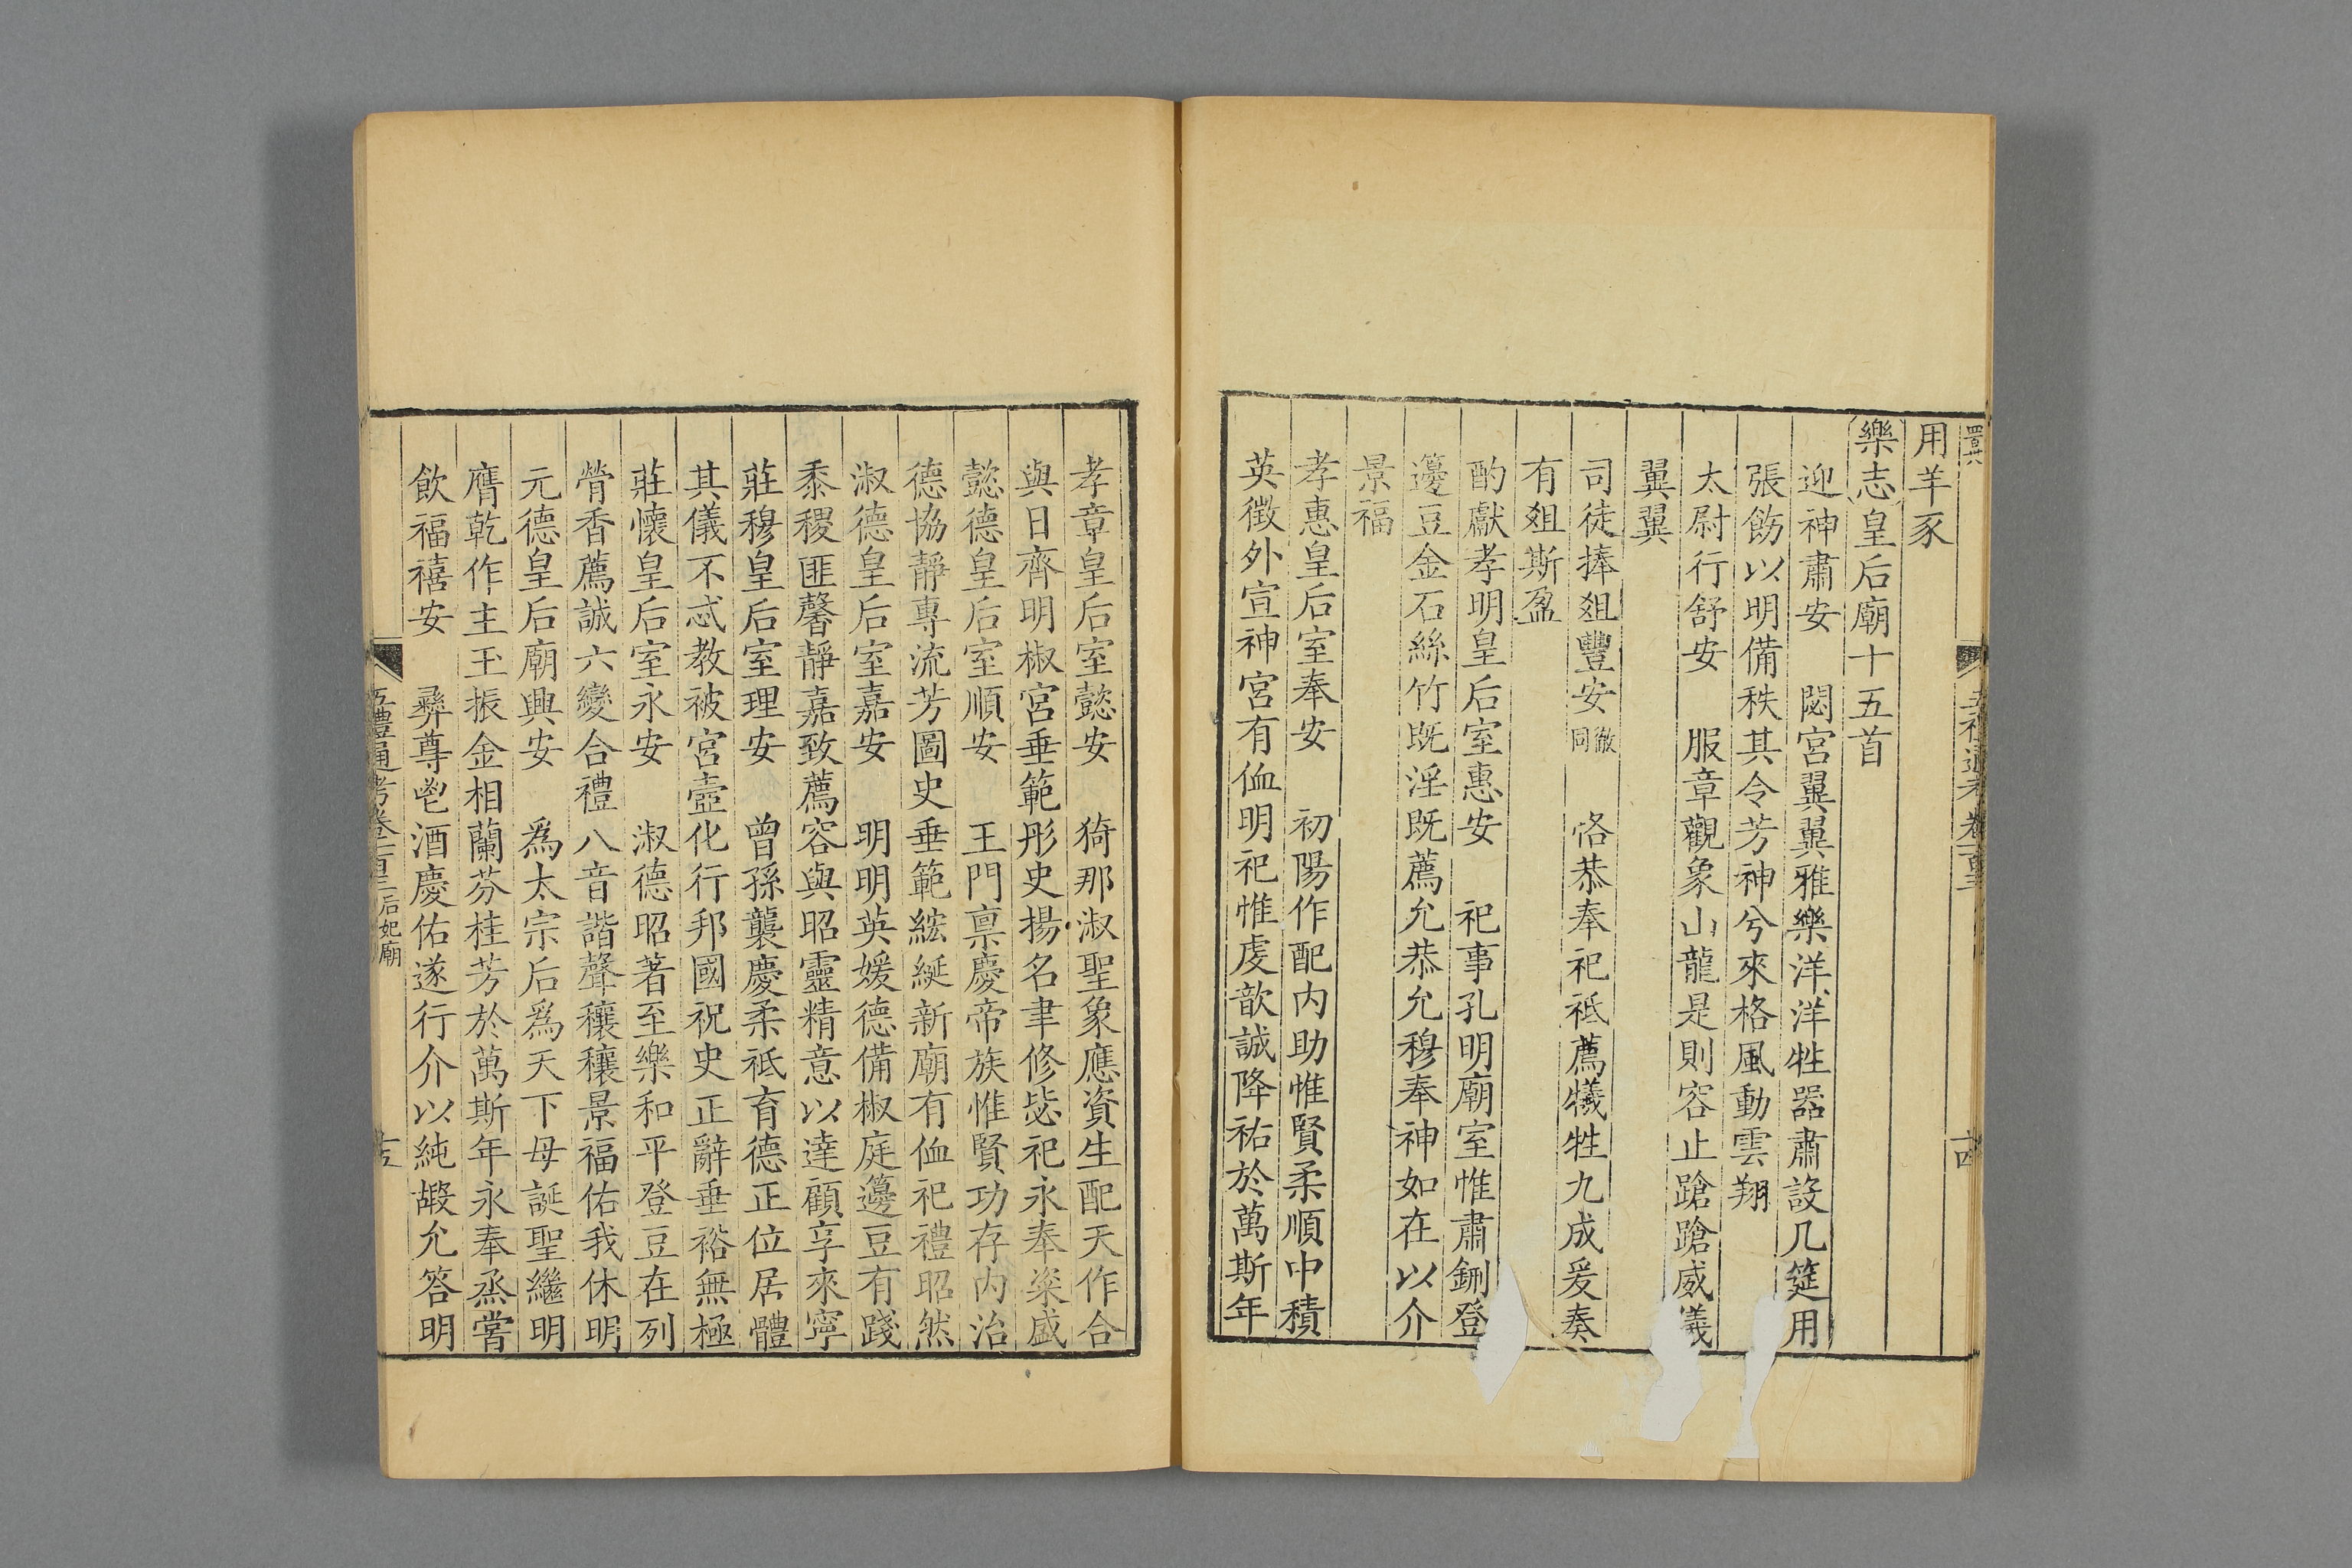 用羊豕
樂志皇后廟十五首
迎神肅安　閟宮翼翼雅樂洋洋牲器肅設几筵用
張飭以明備秩其令芳神兮來格風動雲翔
太尉行舒安　服章觀象山龍是則容止蹌蹌威儀
翼翼
司徒捧俎豐安徹同　恪恭奉祀祗薦犧牲九成爰奏
有俎斯盈
酌獻孝明皇后室惠安　祀事孔明廟室惟肅鉶登
籩豆金石絲竹既淫既薦允恭允穆奉神如在以介
景福
孝惠皇后室奉安　初陽作配内助惟賢柔順中積
英徽外宣神宮有侐明祀惟虔歆誠降祐於萬斯年
孝章皇后室懿安　猗那淑聖象應資生配天作合
與日齊明椒宮垂範彤史揚名聿修毖祀永奉粢盛
懿德皇后室順安　王門禀慶帝族惟賢功存内治
德協靜專流芳圖史垂範綋綖新廟有侐祀禮昭然
淑德皇后室嘉安　明明英媛德備椒庭籩豆有踐
黍稷匪馨靜嘉致薦容與昭靈精意以達顧享來寧
莊穆皇后室理安　曾孫襲慶柔祗育德正位居體
其儀不忒教被宮壼化行邦國祝史正辭垂裕無極
莊懷皇后室永安　淑德昭著至樂和平登豆在列
膋香薦誠六變合禮八音諧聲穰穰景福佑我休明
元德皇后廟興安　爲太宗后爲天下母誕聖繼明
膺乾作主玉振金相蘭芬桂芳於萬斯年永奉烝嘗
飲福禧安　彝尊鬯酒慶佑遂行介以純嘏允答明
五禮通考卷一百三后妃廟
十五